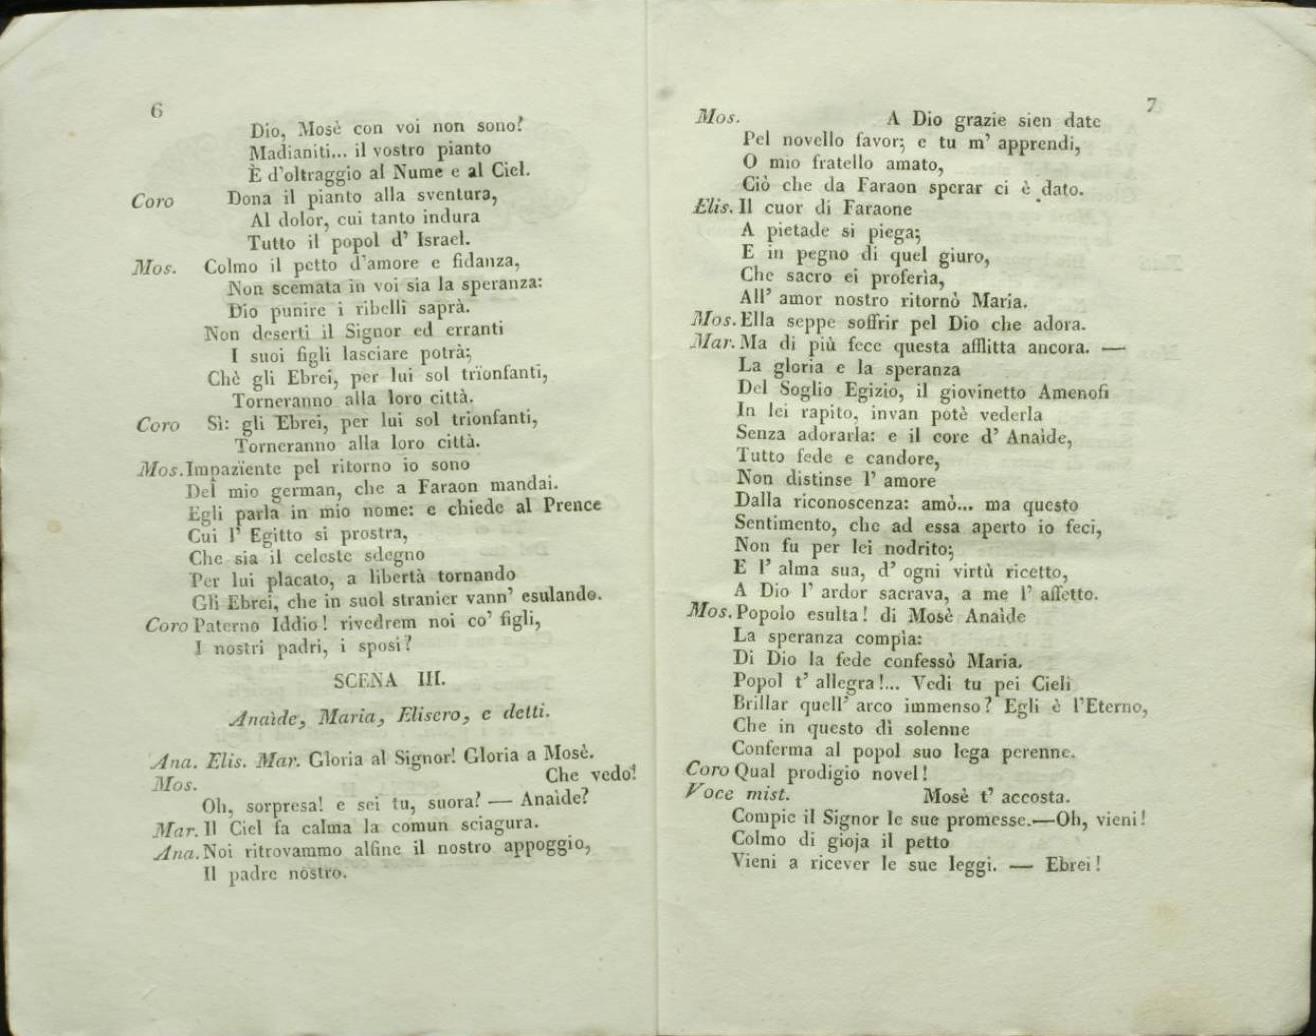 6
Dio, Mosè con voi non sono?
Madianiti... il vostro pianto
È d'oltraggio al Nume e al Ciel.
Coro Dona il pianto alla sventura,
Al dolor, cui tanto indura
Tutto il popol d' Israel.
Mos. Colmo il petto d'amore e fidanza,
Non scemata in voi sia la speranza:
Dio punire i ribelli saprà.
Non deserti il Signor ed erranti
I suoi figli lasciare potrà;
Chè gli Ebrei, per lui sol trïonfanti,
Torneranno alla loro città.
Coro Sì: gli Ebrei, per lui sol trionfanti,
Torneranno alla loro città.
Mos. Impazïente pel ritorno io sono
Del mio german, che a Faraon mandai.
Egli parla in mio nome: e chiede al Prence
Cui l' Egitto si prostra,
Che sia il celeste sdegno
Per lui placato, a libertà tornando
Gli Ebrei, che in suol stranier vann' esulando.
Coro Paterno Iddio! rivedrem noi co' figli,
I nostri padri, i sposi?
SCENA III.
Anaìde, Maria, Elisero, e detti.
Ana. Elis. Mar. Gloria al Signor! Gloria a Mosè.
Mos. Che vedo!
Oh, sorpresa! e sei tu, suora? — Anaìde?
Mar. Il Ciel fa calma la comun sciagura.
Ana. Noi ritrovammo alfine il nostro appoggio,
Il padre nostro.
7
Mos. A Dio grazie sien date
Pel novello favor; e tu m' apprendi,
O mio fratello amato,
Ciò che da Faraon sperar ci è dato.
Elis. Il cuor di Faraone
A pietade si piega;
E in pegno di quel giuro,
Che sacro ei proferìa,
All' amor nostro ritornò Maria.
Mos. Ella seppe soffrir pel Dio che adora.
Mar. Ma di più fece questa afflitta ancora. —
La gloria e la speranza
Del Soglio Egizio, il giovinetto Amenofi
In lei rapito, invan potè vederla
Senza adorarla: e il core d' Anaìde,
Tutto fede e candore,
Non distinse l' amore
Dalla riconoscenza: amò... ma questo
Sentimento, che ad essa aperto io feci,
Non fu per lei nodrito;
E l' alma sua, d' ogni virtù ricetto,
A Dio l' ardor sacrava, a me l' affetto.
Mos. Popolo esulta! di Mosè Anaìde
La speranza compìa:
Di Dio la fede confessò Maria.
Popol t' allegra!... Vedi tu pei Cieli
Brillar quell' arco immenso? Egli è l'Eterno,
Che in questo dì solenne
Conferma al popol suo lega perenne.
Coro Qual prodigio novel!
Voce mist. Mosè t' accosta.
Compie il Signor le sue promesse.—Oh, vieni!
Colmo di gioja il petto
Vieni a ricever le sue leggi. — Ebrei!